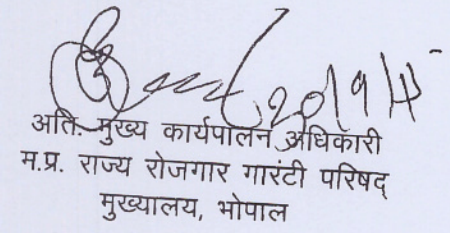 अति. मुख्य कार्यपालन अधिकारी
म.प्र. राज्य रोजगार गारंटी परिषद्
मुख्यालय, भोपाल